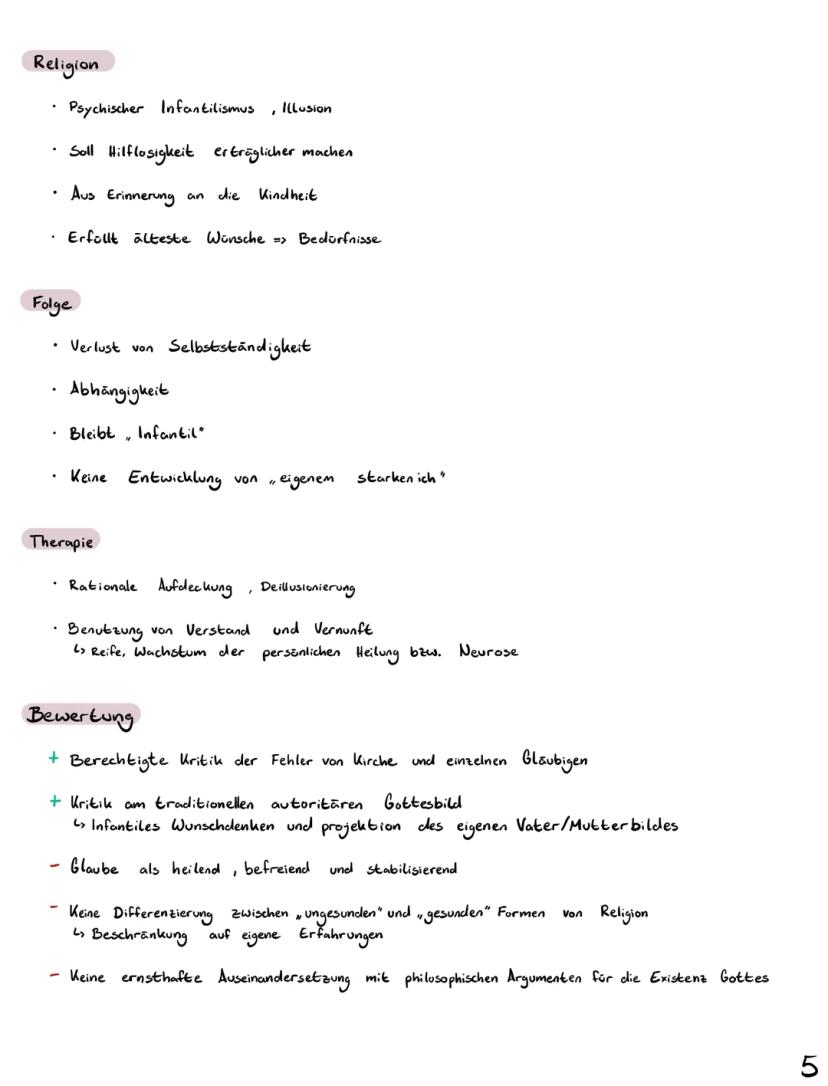 Religion
· Psychischer Infantilismus , Illusion
· Soll Hilflosigkeit erträglicher machen
· Aus Erinnerung an die Kindheit
· Erfüllt älteste Wünsche => Bedürfnisse
Folge
· Verlust von Selbstständigkeit
· Abhängigkeit
· Bleibt „Infantil"
· Keine Entwicklung von „eigenem starken ich"
Therapie
· Rationale Aufdeckung , Deillusionierung
· Benutzung von Verstand und Vernunft
↳ Reife, Wachstum der persönlichen Heilung bzw. Neurose
Bewertung
+ Berechtigte Kritik der Fehler von Kirche und einzelnen Gläubigen
+ Kritik am traditionellen autoritären Gottesbild
↳ Infantiles Wunschdenken und projektion des eigenen Vater/Mutterbildes
- Glaube als heilend , befreiend und stabilisierend
- Keine Differenzierung zwischen „ungesunden" und „gesunden" Formen von Religion
↳ Beschränkung auf eigene Erfahrungen
- Keine ernsthafte Auseinandersetzung mit philosophischen Argumenten für die Existenz Gottes
5